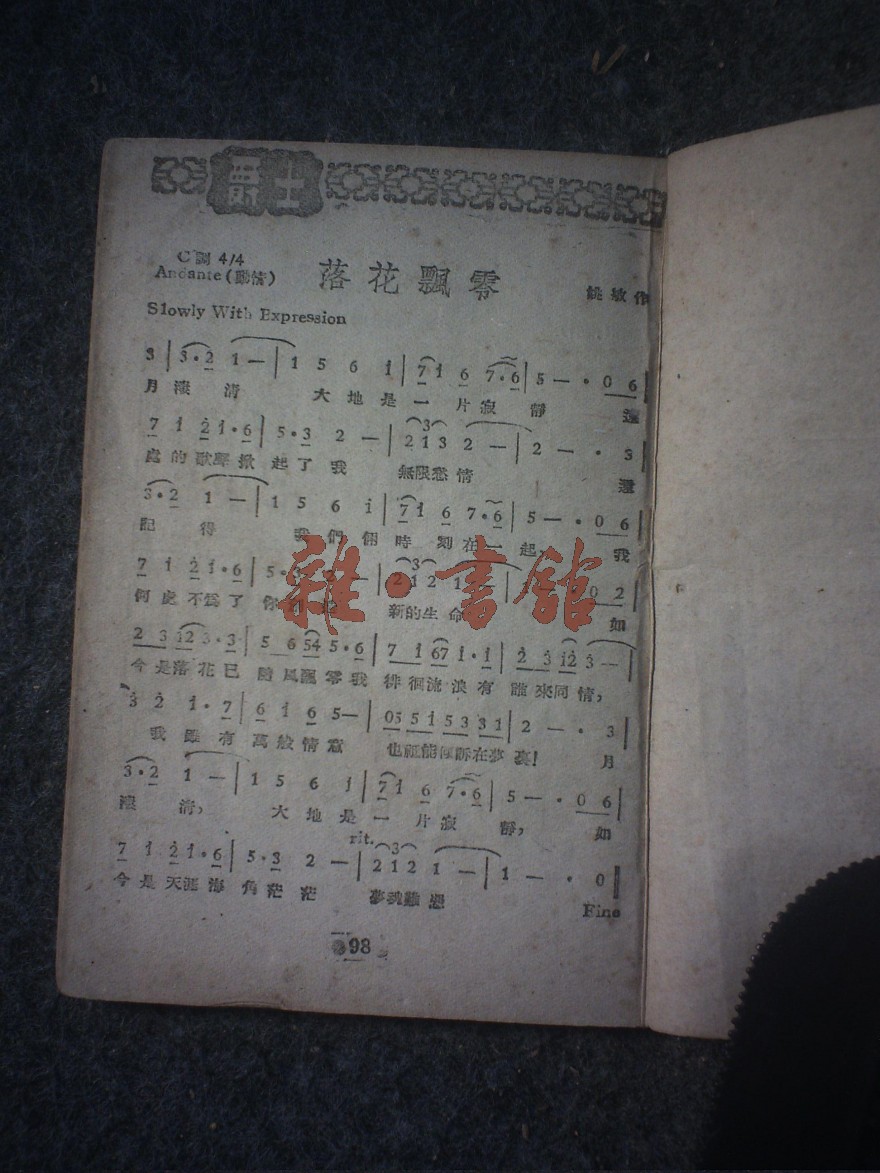 爵士
C調 4/4
Andante(動情) 落花飄零 姚敏作
Slowly With Expression
3 | 3·2 1 — | 1 5 6 i | 7 i 6 7·6 | 5 — · 0 6 |
月淒清 大地是一片寂靜 遠
7 i 2 i·6 | 5·3 2 — | 2 1 3 2 — | 2 — · 3 |
處的歌聲掀起了我 無限愁情 還
3·2 1 — | 1 5 6 i | 7 i 6 7·6 | 5 — · 0 6 |
記得 我們倆時刻在一起, 我
7 i 2 i·6 | 5·3 2 — | 2 1 2 1 — | 0 2 |
何處不爲了你 新的生命 如
2 3 i2 3·3 | 5 6 54 5·6 | 7 i 67 i·i | 2 3 i2 3 — |
今是落花已隨風飄零我徘徊流浪有誰來同情,
3 2 i·7 | 6 i 6 5 — | 05 5 i 5 3 3 1 | 2 — · 3 |
我雖有萬般情意 也祗能傾訴在夢裏! 月
3·2 1 — | 1 5 6 i | 7 i 6 7·6 | 5 — · 0 6 |
淒清, 大地是一片寂靜, 如
rit.
7 i 2 i·6 | 5·3 2 — | 2 1 2 1 — | 1 — · 0
今是天涯海角茫茫 夢魂難
Fine
98
雜·書館